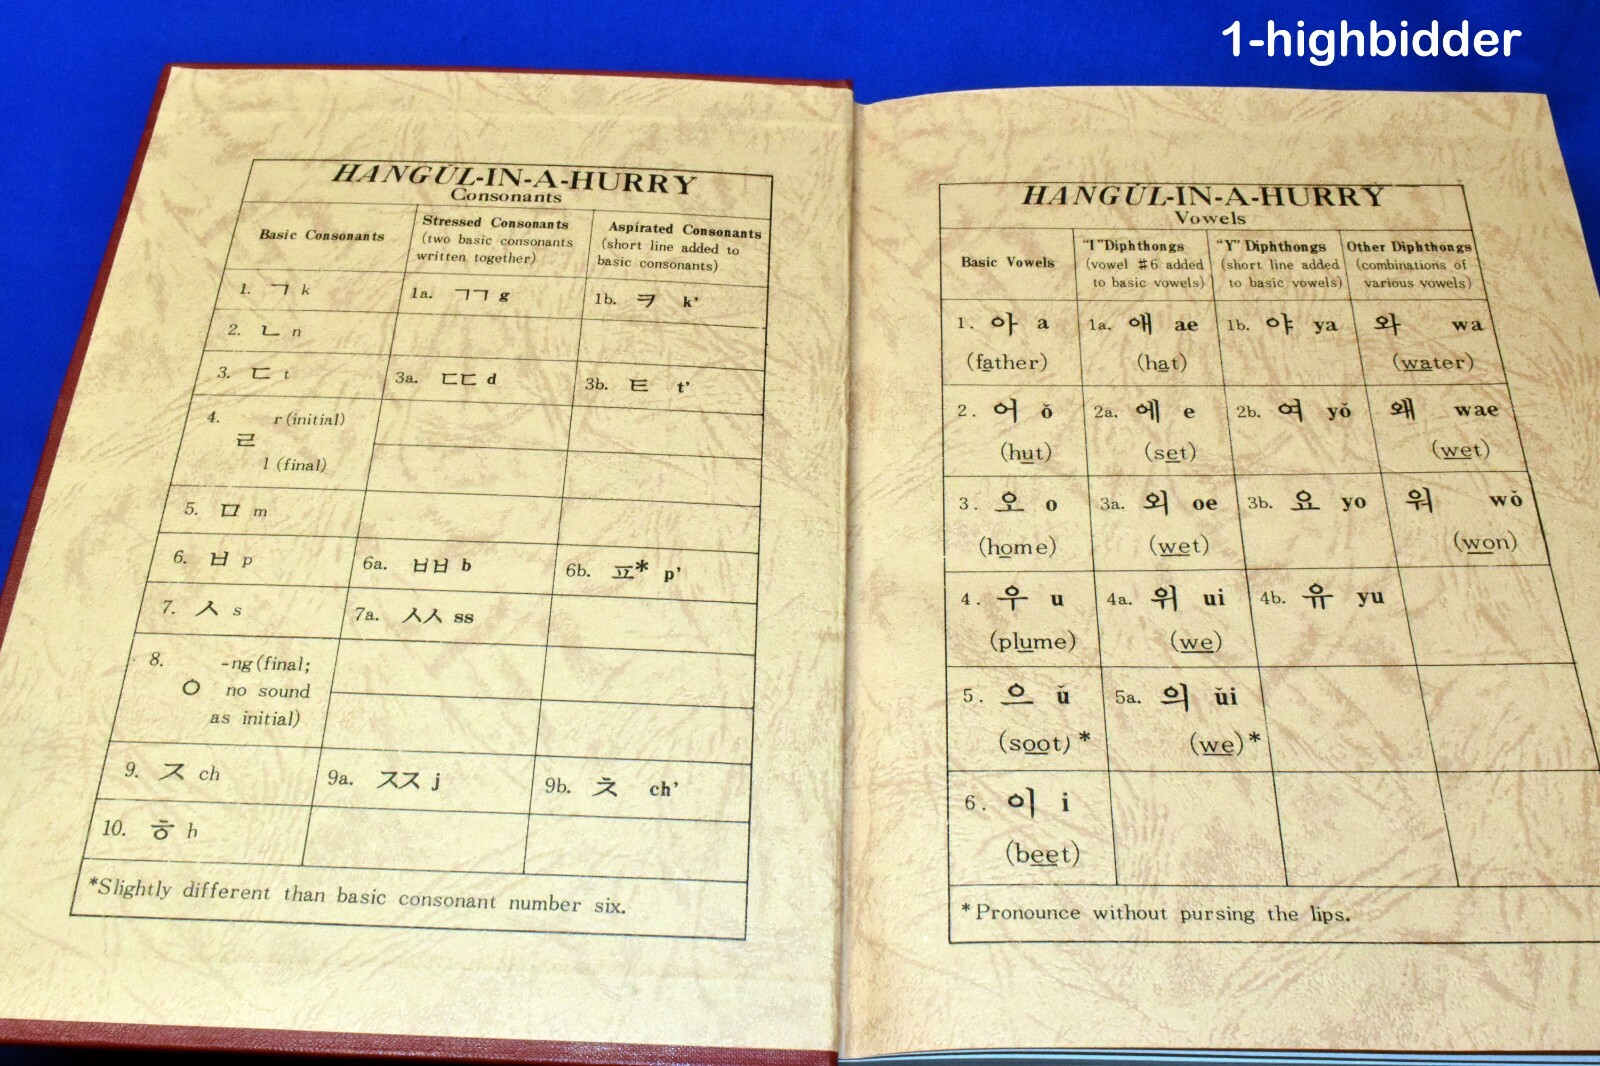 1-highbidder
HANGŬL-IN-A-HURRY
Consonants
Basic Consonants
Stressed Consonants
(two basic consonants
written together)
Aspirated Consonants
(short line added to
basic consonants)
1. ㄱ k 1a. ㄱㄱ g 1b. ㅋ k’
2. ㄴ n
3. ㄷ t 3a. ㄷㄷ d 3b. ㅌ t’
4. r (initial)
ㄹ
l (final)
5. ㅁ m
6. ㅂ p 6a. ㅂㅂ b 6b. ㅍ* p’
7. ㅅ s 7a. ㅅㅅ ss
8. -ng (final;
ㅇ no sound
as initial)
9. ㅈ ch 9a. ㅈㅈ j 9b. ㅊ ch’
10. ㅎ h
*Slightly different than basic consonant number six.
HANGŬL-IN-A-HURRY
Vowels
Basic Vowels
“I” Diphthongs
(vowel #6 added
to basic vowels)
“Y” Diphthongs
(short line added
to basic vowels)
Other Diphthongs
(combinations of
various vowels)
1. 아 a 1a. 애 ae 1b. 야 ya 와 wa
(father) (hat) (water)
2. 어 ŏ 2a. 에 e 2b. 여 yŏ 왜 wae
(hut) (set) (wet)
3. 오 o 3a. 외 oe 3b. 요 yo 워 wŏ
(home) (wet) (won)
4. 우 u 4a. 위 ui 4b. 유 yu
(plume) (we)
5. 으 ŭ 5a. 의 ŭi
(soot)* (we)*
6. 이 i
(beet)
*Pronounce without pursing the lips.